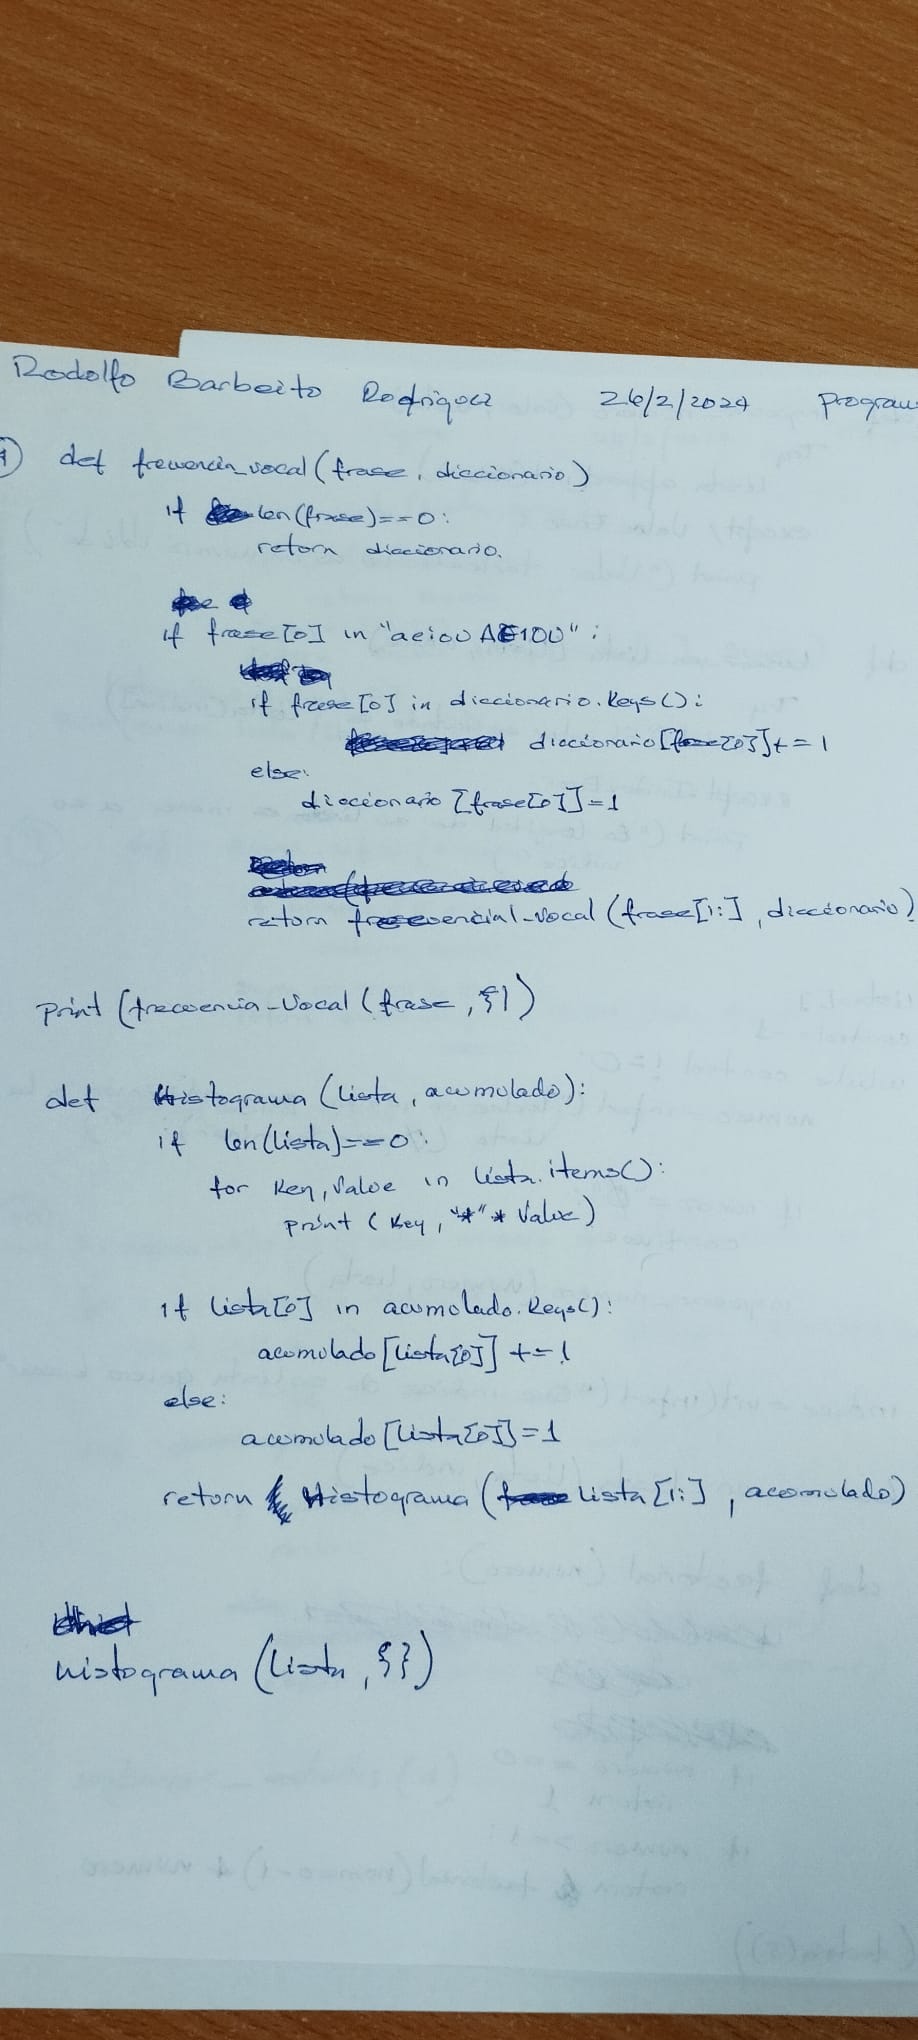 Rodolfo Barbeito Rodriguez 26/2/2024 program
1) def frewencia_vocal (frase, diccionario)
if len(frase)==0:
retorn diccionario.
if frase[0] in "aeiou AEIOU":
if frase[0] in diccionario.Keys():
diccionario[frase[0]]+=1
else:
diccionario [frase[0]]=1
retorn frecuencial-vocal (frase[1:], diccionario)
print (frecuencia-Vocal (frase, {})
def Histograma (lista, acumulado):
if len(lista)==0:
for Key, Value in lista.items():
print (Key, "*" * Value)
if lista[0] in acumulado.Keys():
acumulado [lista[0]] +=1
else:
acumulado [lista[0]]=1
retorn Histograma (lista [1:], acumulado)
histograma (lista, {})